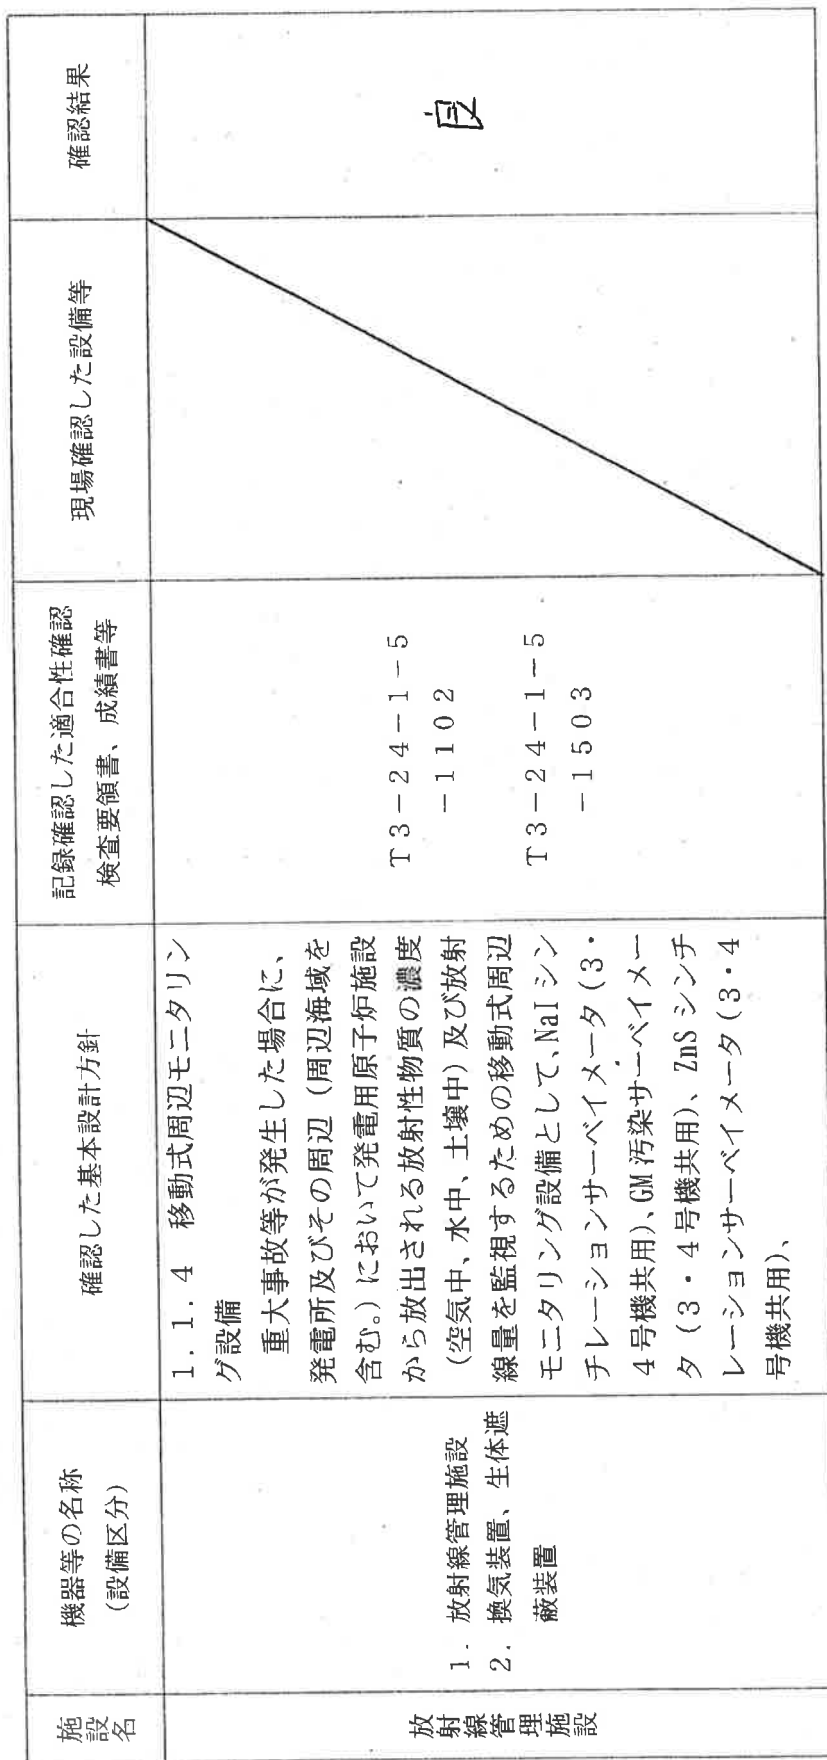 施設名
機器等の名称
(設備区分)
確認した基本設計方針
記録確認した適合性確認
検査要領書、成績書等
現場確認した設備等
確認結果
放射線管理施設
1. 放射線管理施設
2. 換気装置、生体遮
蔽装置
1.1.4 移動式周辺モニタリン
グ設備
重大事故等が発生した場合に、
発電所及びその周辺(周辺海域を
含む。)において発電用原子炉施設
から放出される放射性物質の濃度
(空気中、水中、土壌中)及び放射
線量を監視するための移動式周辺
モニタリング設備として、NaIシン
チレーションサーベイメータ(3・
4号機共用)、GM汚染サーベイメー
タ(3・4号機共用)、ZnSシンチ
レーションサーベイメータ(3・4
号機共用)、
T3-24-1-5
-1102
T3-24-1-5
-1503
良